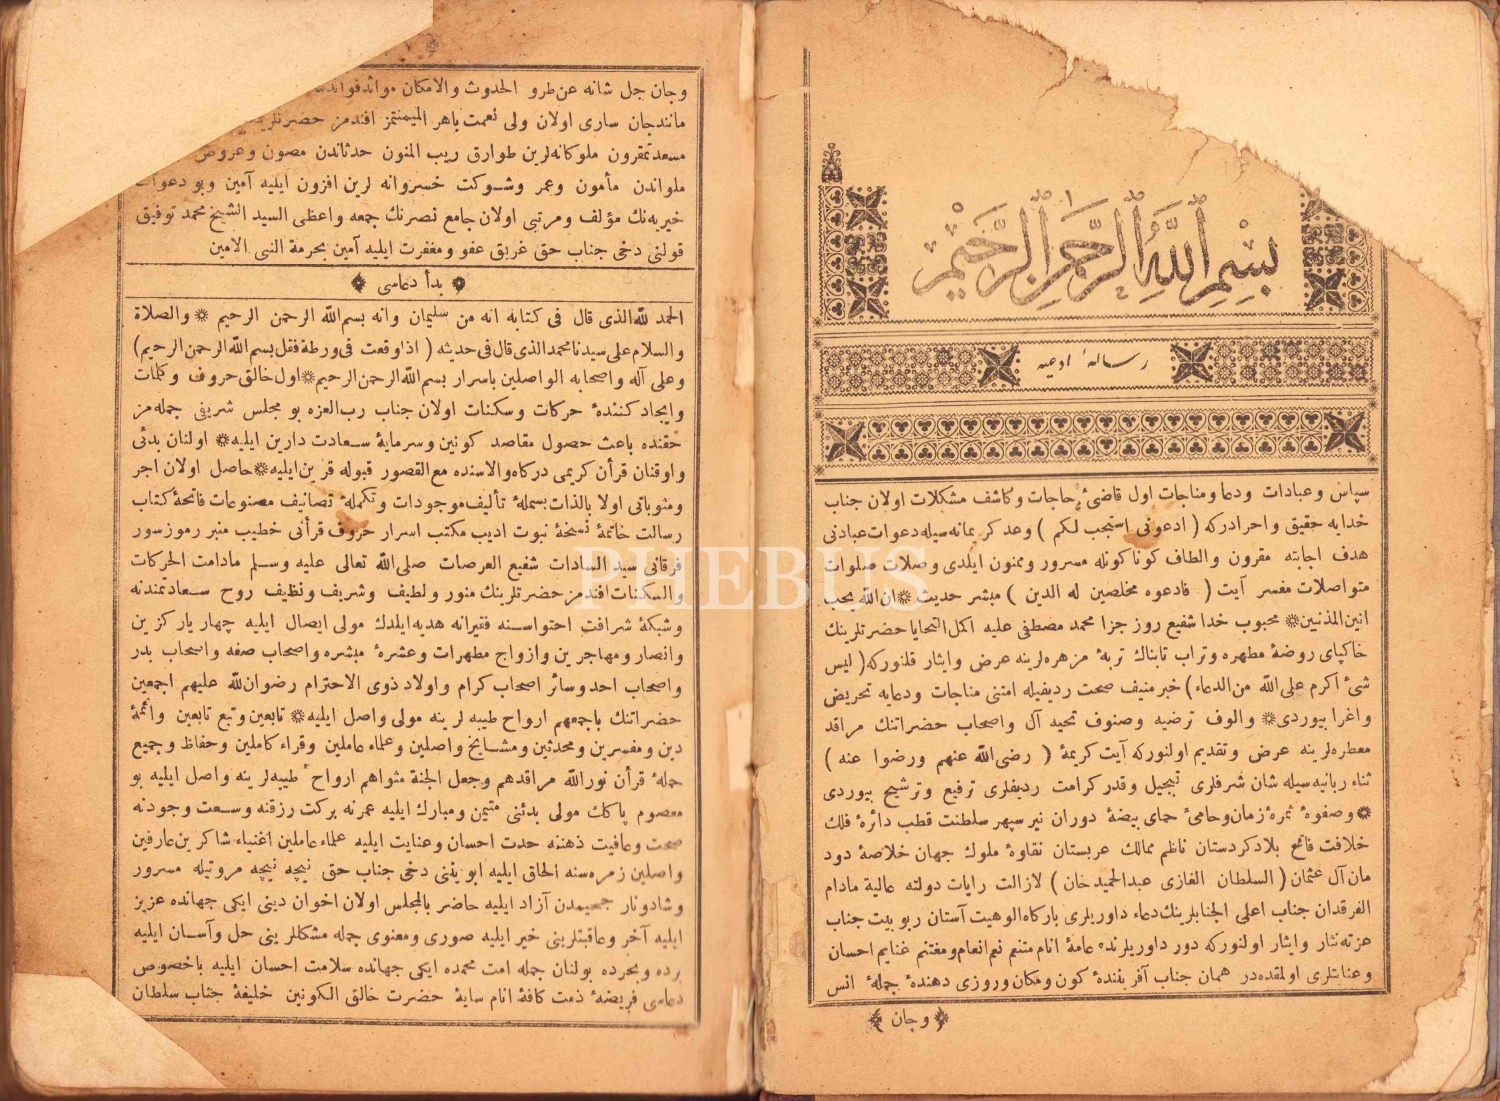 بسم الله الرحمن الرحيم
رسالهٔ ادعيه
سپاس وعبادات ودعا ومناجات اول قاضیٔ حاجات وکاشف مشکلات اولان جناب
خدایه حقیق واحرادرکه ( ادعونی استجب لکم ) وعد کریمانه سیله دعوات عبادنی
هدف اجابته مقرون والطاف کوناکونله مسرور وممنون ایلدی وصلات صلوات
متواصلات مفسر آیت ( فادعوه مخلصین له الدین ) مبشر حدیث ❋ ان الله یحب
انین المذنبین ❋ محبوب خدا شفیع روز جزا محمد مصطفی علیه اکمل التحایا حضرتلرینك
خاکپای روضهٔ مطهره وتراب تابناك تربهٔ مزهره لرینه عرض وایثار قلنورکه ( لیس
شیٔ اکرم علی الله من الدعاء ) خبر منیف صحت ردیفیله امتنی مناجات ودعایه تحریض
واغرا بیوردی ❋ والوف ترضیه وصنوف تحیه آل واصحاب حضراتنك مراقد
معطره لرینه عرض وتقدیم اولنورکه آیت کریمهٔ ( رضی الله عنهم ورضوا عنه )
ثناء ربانیه سیله شان شرفلری تبجیل وقدر کرامت ردیفلری ترفیع وترشیح بیوردی
❋ وصفوهٔ ثمرهٔ زمان وحامیٔ حمای بیضهٔ دوران نیر سپهر سلطنت قطب دائرهٔ فلك
خلافت فاتح بلاد کردستان ناظم ممالك عربستان نقاوهٔ ملوك جهان خلاصهٔ دود
مان آل عثمان ( السلطان الغازی عبدالحمید خان ) لازالت رایات دولته عالیة مادام
الفرقدان جناب اعلی الجنابلرینك دعاء داوریلری بارکاه الوهیت آستان ربوبیت جناب
عزته نثار وایثار اولنورکه دور داوریلرنده عامهٔ انام متنعم نعم انعام ومغتنم غنایم احسان
وعنایتلری اولمقده در همان جناب آفریننده کون ومکان وروزی دهندهٔ جملهٔ انس
وجان
وجان جل شانه عن طرو الحدوث والامکان موائد فوائد
مانند جان ساری اولان ولی نعمت باهر المیمنتمز افندمز
مسعدتمقرون ملوکانه لرین طوارق ریب المنون حدثاندن مصون وعروض
ملواندن مأمون وعمر وشوکت خسروانه لرین افزون ایلیه آمین وبو دعوات
خیریه نك مؤلف ومرتبی اولان جامع نصرتك جمعه واعظی السید الشیخ محمد توفیق
قولنی دخی جناب حق غریق عفو ومغفرت ایلیه آمین بحرمة النبی الامین
بدأ دعاسی
الحمد لله الذی قال فی کتابه انه من سلیمان وانه بسم الله الرحمن الرحیم ❋ والصلاة
والسلام علی سیدنا محمد الذی قال فی حدیثه ( اذا وقعت فی ورطة فقل بسم الله الرحمن الرحیم )
وعلی آله واصحابه الواصلین باسرار بسم الله الرحمن الرحیم ❋ اول خالق حروف وکلمات
وایجاد کنندهٔ حرکات وسکنات اولان جناب رب العزه بو مجلس شریفی جمله مز
حقنده باعث حصول مقاصد کونین وسرمایهٔ سعادت دارین ایلیه ❋ اولنان بدئی
واوقنان قرآن کریمی درکاه والاسنده مع القصور قبوله قرین ایلیه ❋ حاصل اولان اجر
ومثوباتی اولا بالذات بسملهٔ تألیف موجودات وتکملهٔ تصانیف مصنوعات فاتحهٔ کتاب
رسالت خاتمهٔ نسخهٔ نبوت ادیب مکتب اسرار حروف قرآنی خطیب منبر رموز سور
فرقانی سید السادات شفیع العرصات صلی الله تعالی علیه وسلم مادامت الحرکات
والسکنات افندمز حضرتلرینك منور ولطیف وشریف ونظیف روح سعادتمندنه
وشبکهٔ شرافت احتواسنه فقیرانه هدیه ایلدك مولی ایصال ایلیه چهار یار کزین
وانصار ومهاجرین وازواج مطهرات وعشرهٔ مبشره واصحاب صفه واصحاب بدر
واصحاب احد وسائر اصحاب کرام واولاد ذوی الاحترام رضوان لله علیهم اجمعین
حضراتنك باجمعهم ارواح طیبه لرینه مولی واصل ایلیه ❋ تابعین وتبع تابعین وائمهٔ
دین ومفسرین ومحدثین ومشایخ واصلین وعلماء عاملین وقراء کاملین وحفاظ وجمیع
جملهٔ قرآن نور الله مراقدهم وجعل الجنة مثواهم ارواح طیبه لرینه واصل ایلیه بو
معصوم پاکك مولی بدئنی متیمن ومبارك ایلیه عمرنه برکت رزقنه وسعت وجودنه
صحت وعافیت ذهننه حدت احسان وعنایت ایلیه علماء عاملین اغنیاء شاکرین عارفین
واصلین زمره سنه الحاق ایلیه ابویننی دخی جناب حق نیچه نیچه مروتیله مسرور
وشادو نار جحیمدن آزاد ایلیه حاضر بالمجلس اولان اخوان دینی ایکی جهانده عزیز
ایلیه آخر وعاقبتلرینی خیر ایلیه صوری ومعنوی جمله مشکللرینی حل وآسان ایلیه
برده وبحرده بولنان جمله امت محمده ایکی جهانده سلامت احسان ایلیه باخصوص
دعاسی فریضهٔ ذمت کافهٔ انام سایهٔ حضرت خالق الکونین خلیفهٔ جناب سلطان
PHEBUS